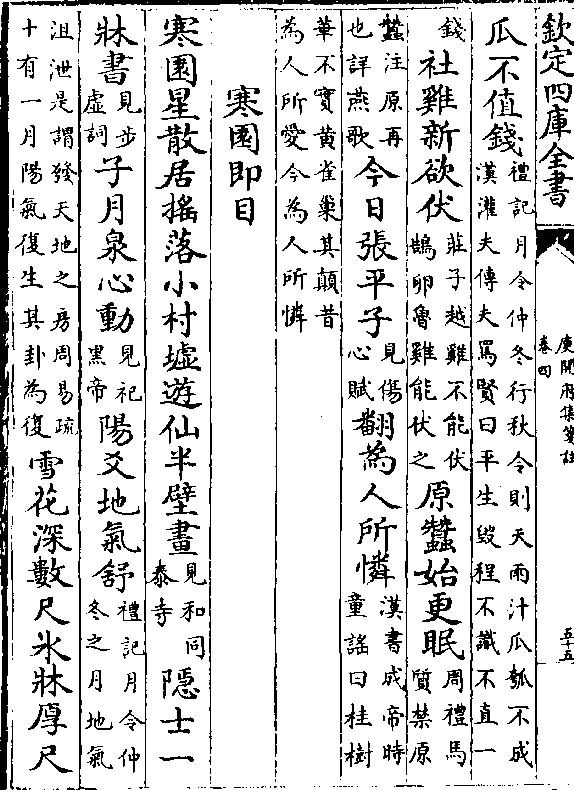 欽定四庫全書
庾開府集箋註
卷四
五十五
瓜不值錢禮記月令仲冬行秋令則天雨汁瓜瓠不成
漢灌夫傳夫罵賢曰平生毀程不識不直一
錢社雞新欲伏莊子越雞不能伏
鵠卵魯雞能伏之原蠶始更眠周禮馬
質禁原
蠶注原再
也詳燕歌今日張平子見傷
心賦翻為人所憐漢書成帝時
童謡曰桂樹
華不實黄雀巢其顛昔
為人所愛今為人所憐
寒園即目
寒園星散居搖落小村墟遊仙半壁畫見和同
泰寺隠士一
牀書見步
虚詞子月泉心動見祀
黒帝陽爻地氣舒禮記月令仲
冬之月地氣
沮泄是謂發天地之房周易疏
十有一月陽氣復生其卦為復雪花深數尺氷牀厚尺